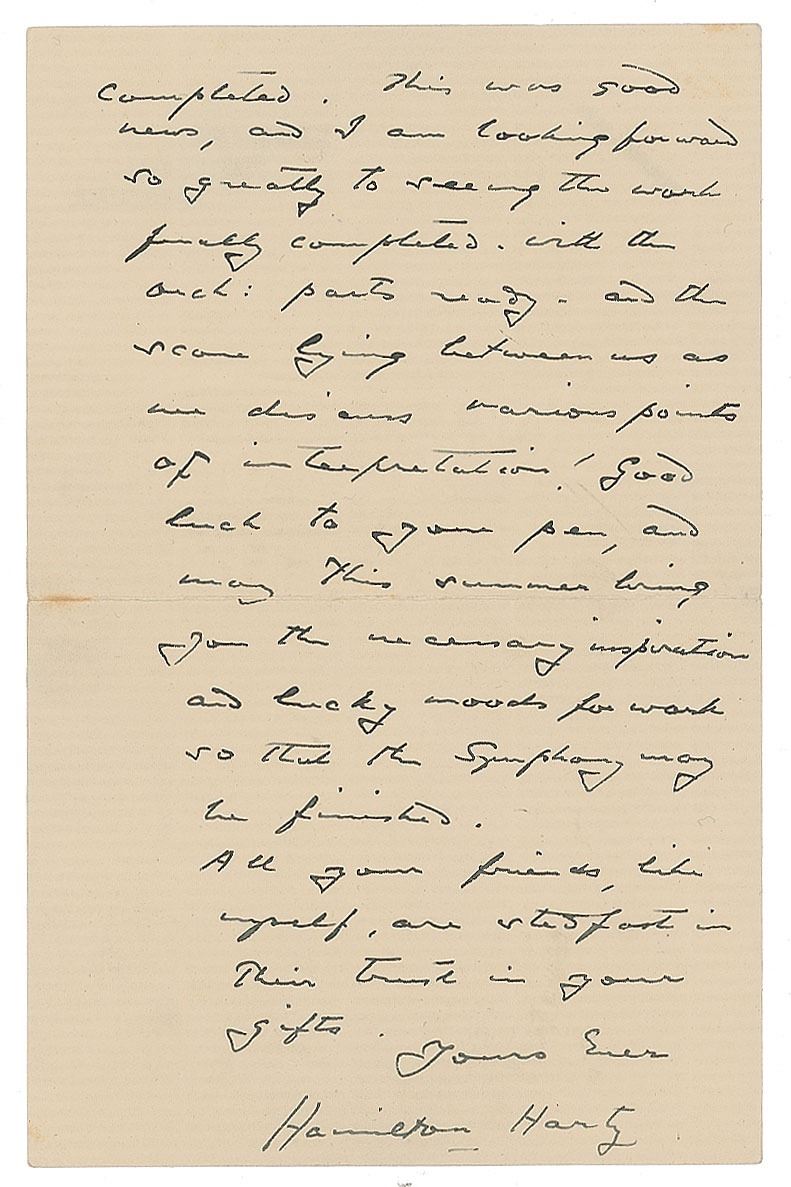 completed. This was good
news, and I am looking forward
so greatly to seeing the work
finally completed. with the
orch: parts ready - and the
score lying between us as
we discuss various points
of interpretation! Good
luck to your pen, and
may this summer bring
you the necessary inspiration
and lucky moods for work
so that the Symphony may
be finished.
All your friends, like
myself, are stedfast in
their trust in your
gifts.
Yours Ever
Hamilton Harty